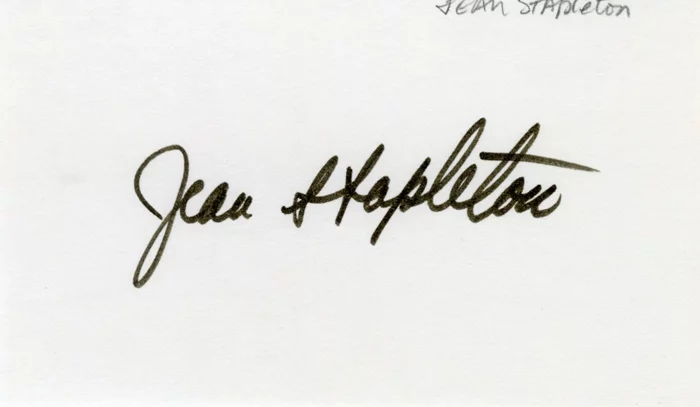 JEAN STApleton
Jean Stapleton